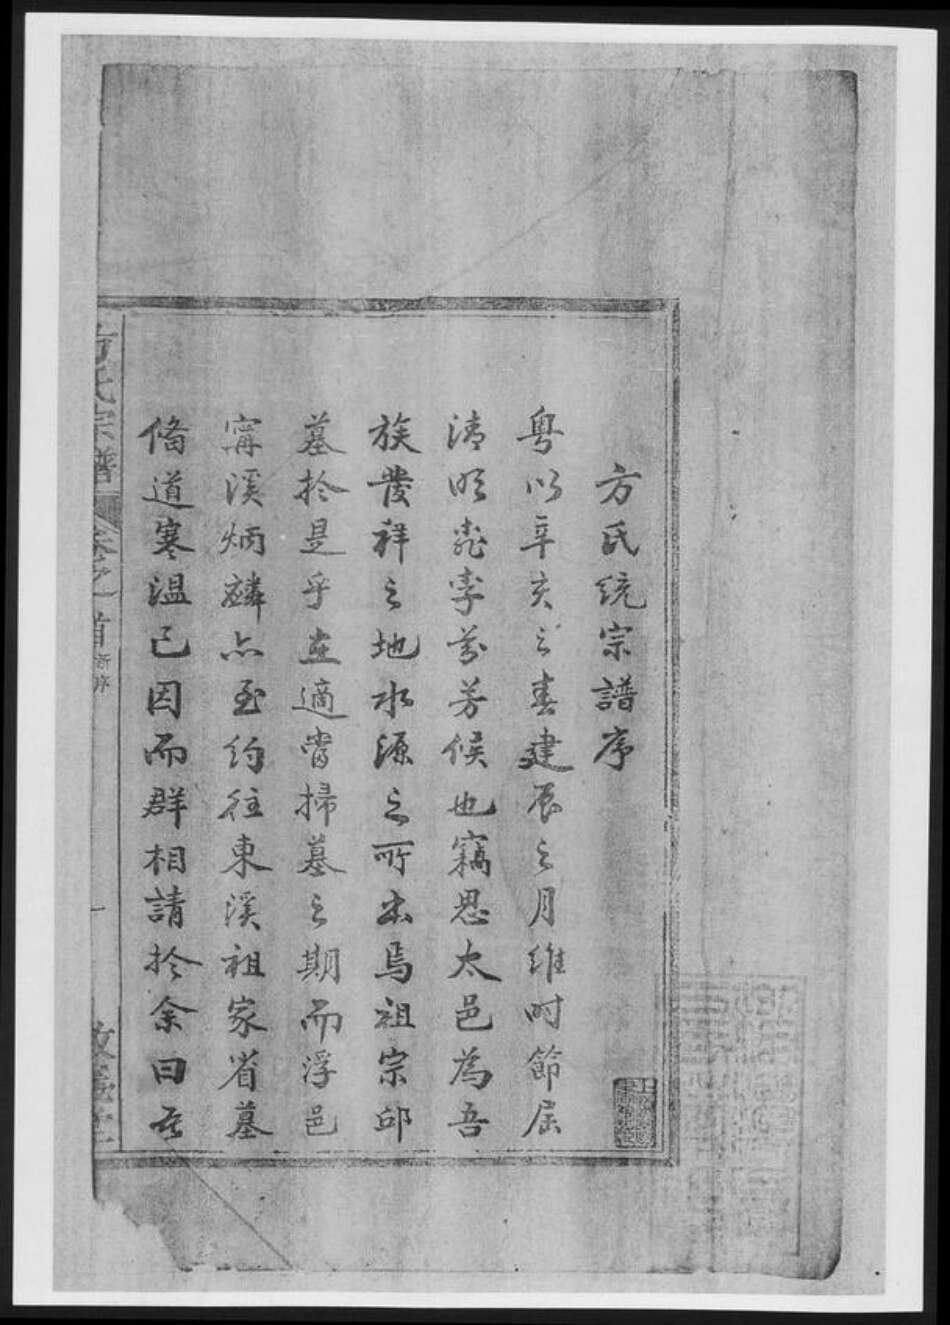 方氏統宗譜序
粵以辛亥之春建辰之月維时節屆
清明桃李芬芳候也竊思太邑為吾
族發祥之地水源之所出焉祖宗邱
墓扵是乎在適當掃墓之期而浮邑
甯溪炳麟亦至約往東溪祖家省墓
備道寒温已因而群相請扵余曰吾
方氏宗譜 卷之首 新序 一 敦義堂